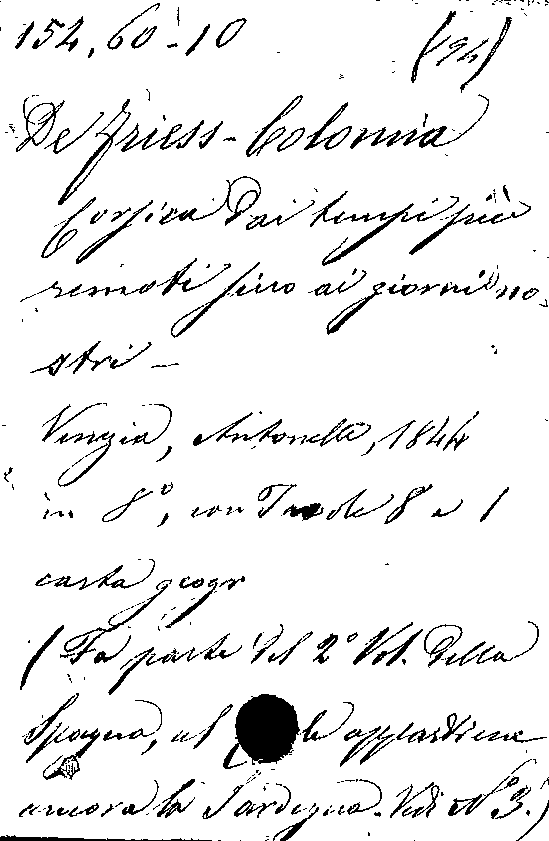 152,60-10 (94)
De Friess-Colonna
Corsica Dai tempi più
remoti fino ai giorni no-
stri -
Venezia, Antonelli, 1844
in 8°, con Tavole 8 e 1
carta geogr
(Fa parte del 2° Vol. Della
Spagna, al quale appartiene
ancora la Sardegna. Vedi N° 3.)